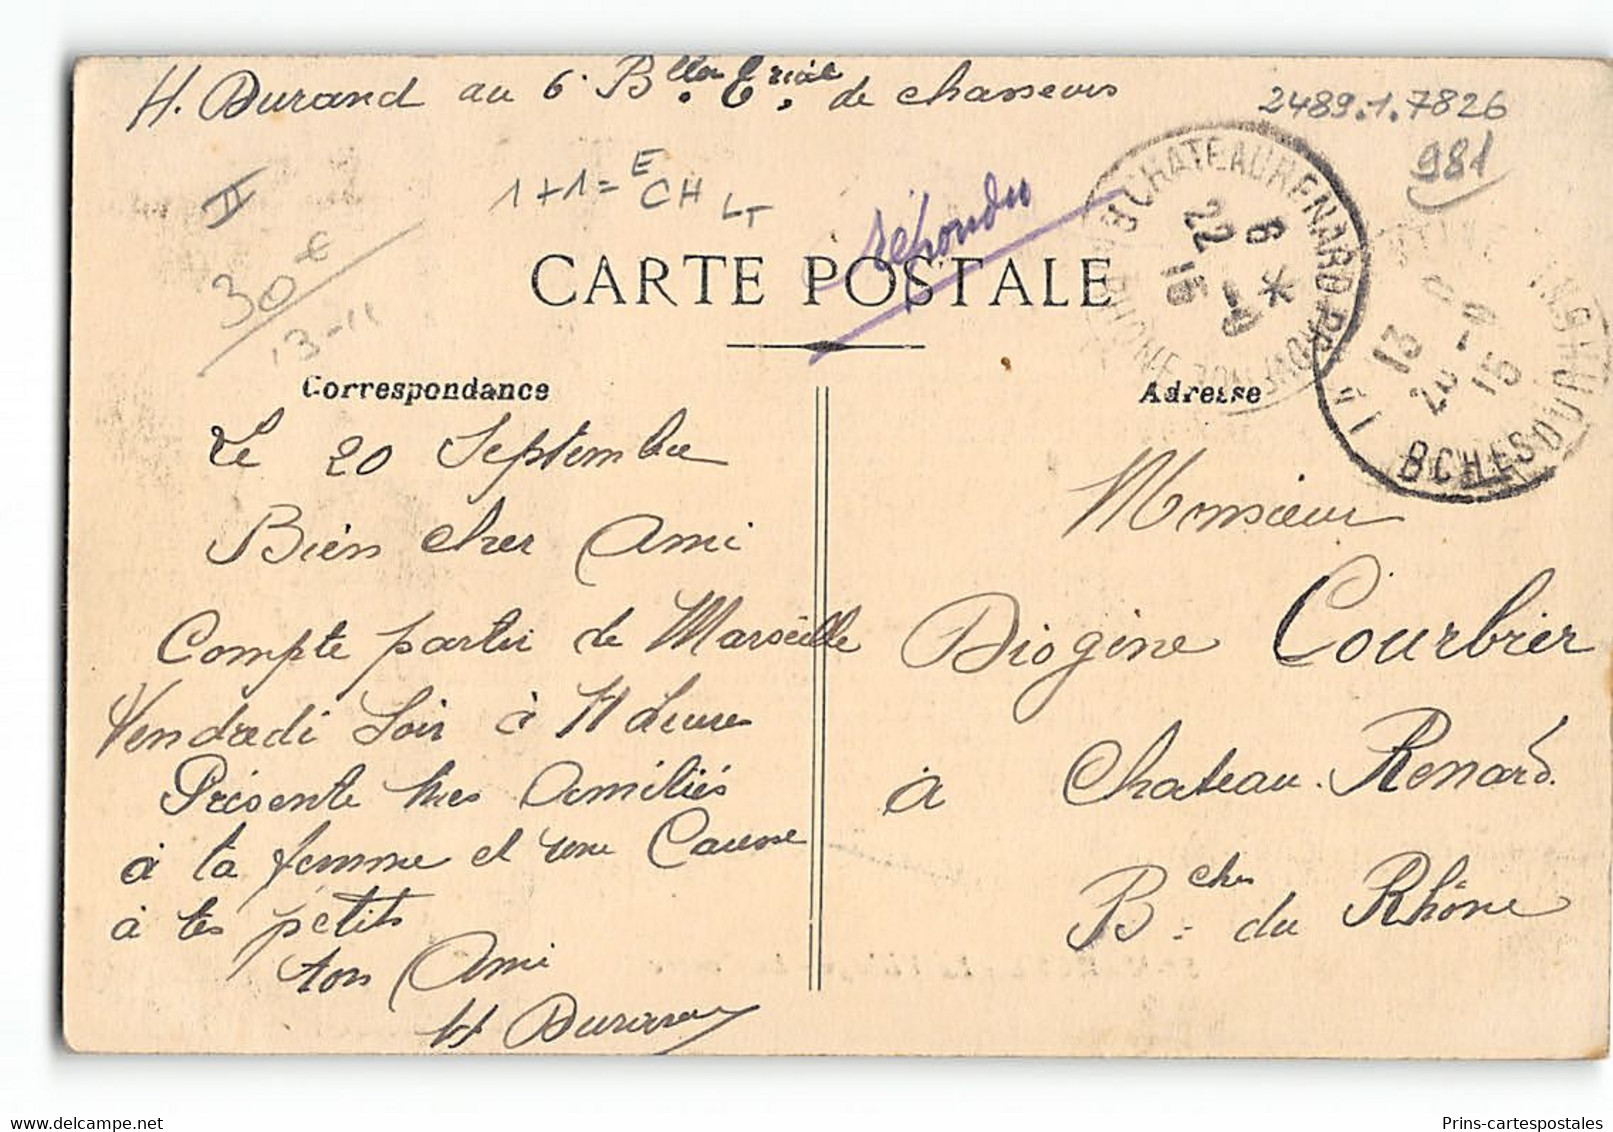 H. Durand au 6e Bllon Erial de chasseurs
2489.1.7826
981
II
1+1= E CH LT
30 €
13-11
répondu
CARTE POSTALE
CHATEAURENARD-PR
6 *
22 -9
15
13
20 -9
15
BCHES DU
Correspondance
Adresse
Le 20 Septembre
Bien cher Ami
Compte partir de Marseille
Vendredi Soir à 11 heure
Présente mes Amitiés
à ta femme et une Caresse
à tes petits
ton Ami
H Durand
Monsieur
Diogène Courbier
à Chateau-Renard.
Bches du Rhône
delcampe.net
Prins-cartespostales